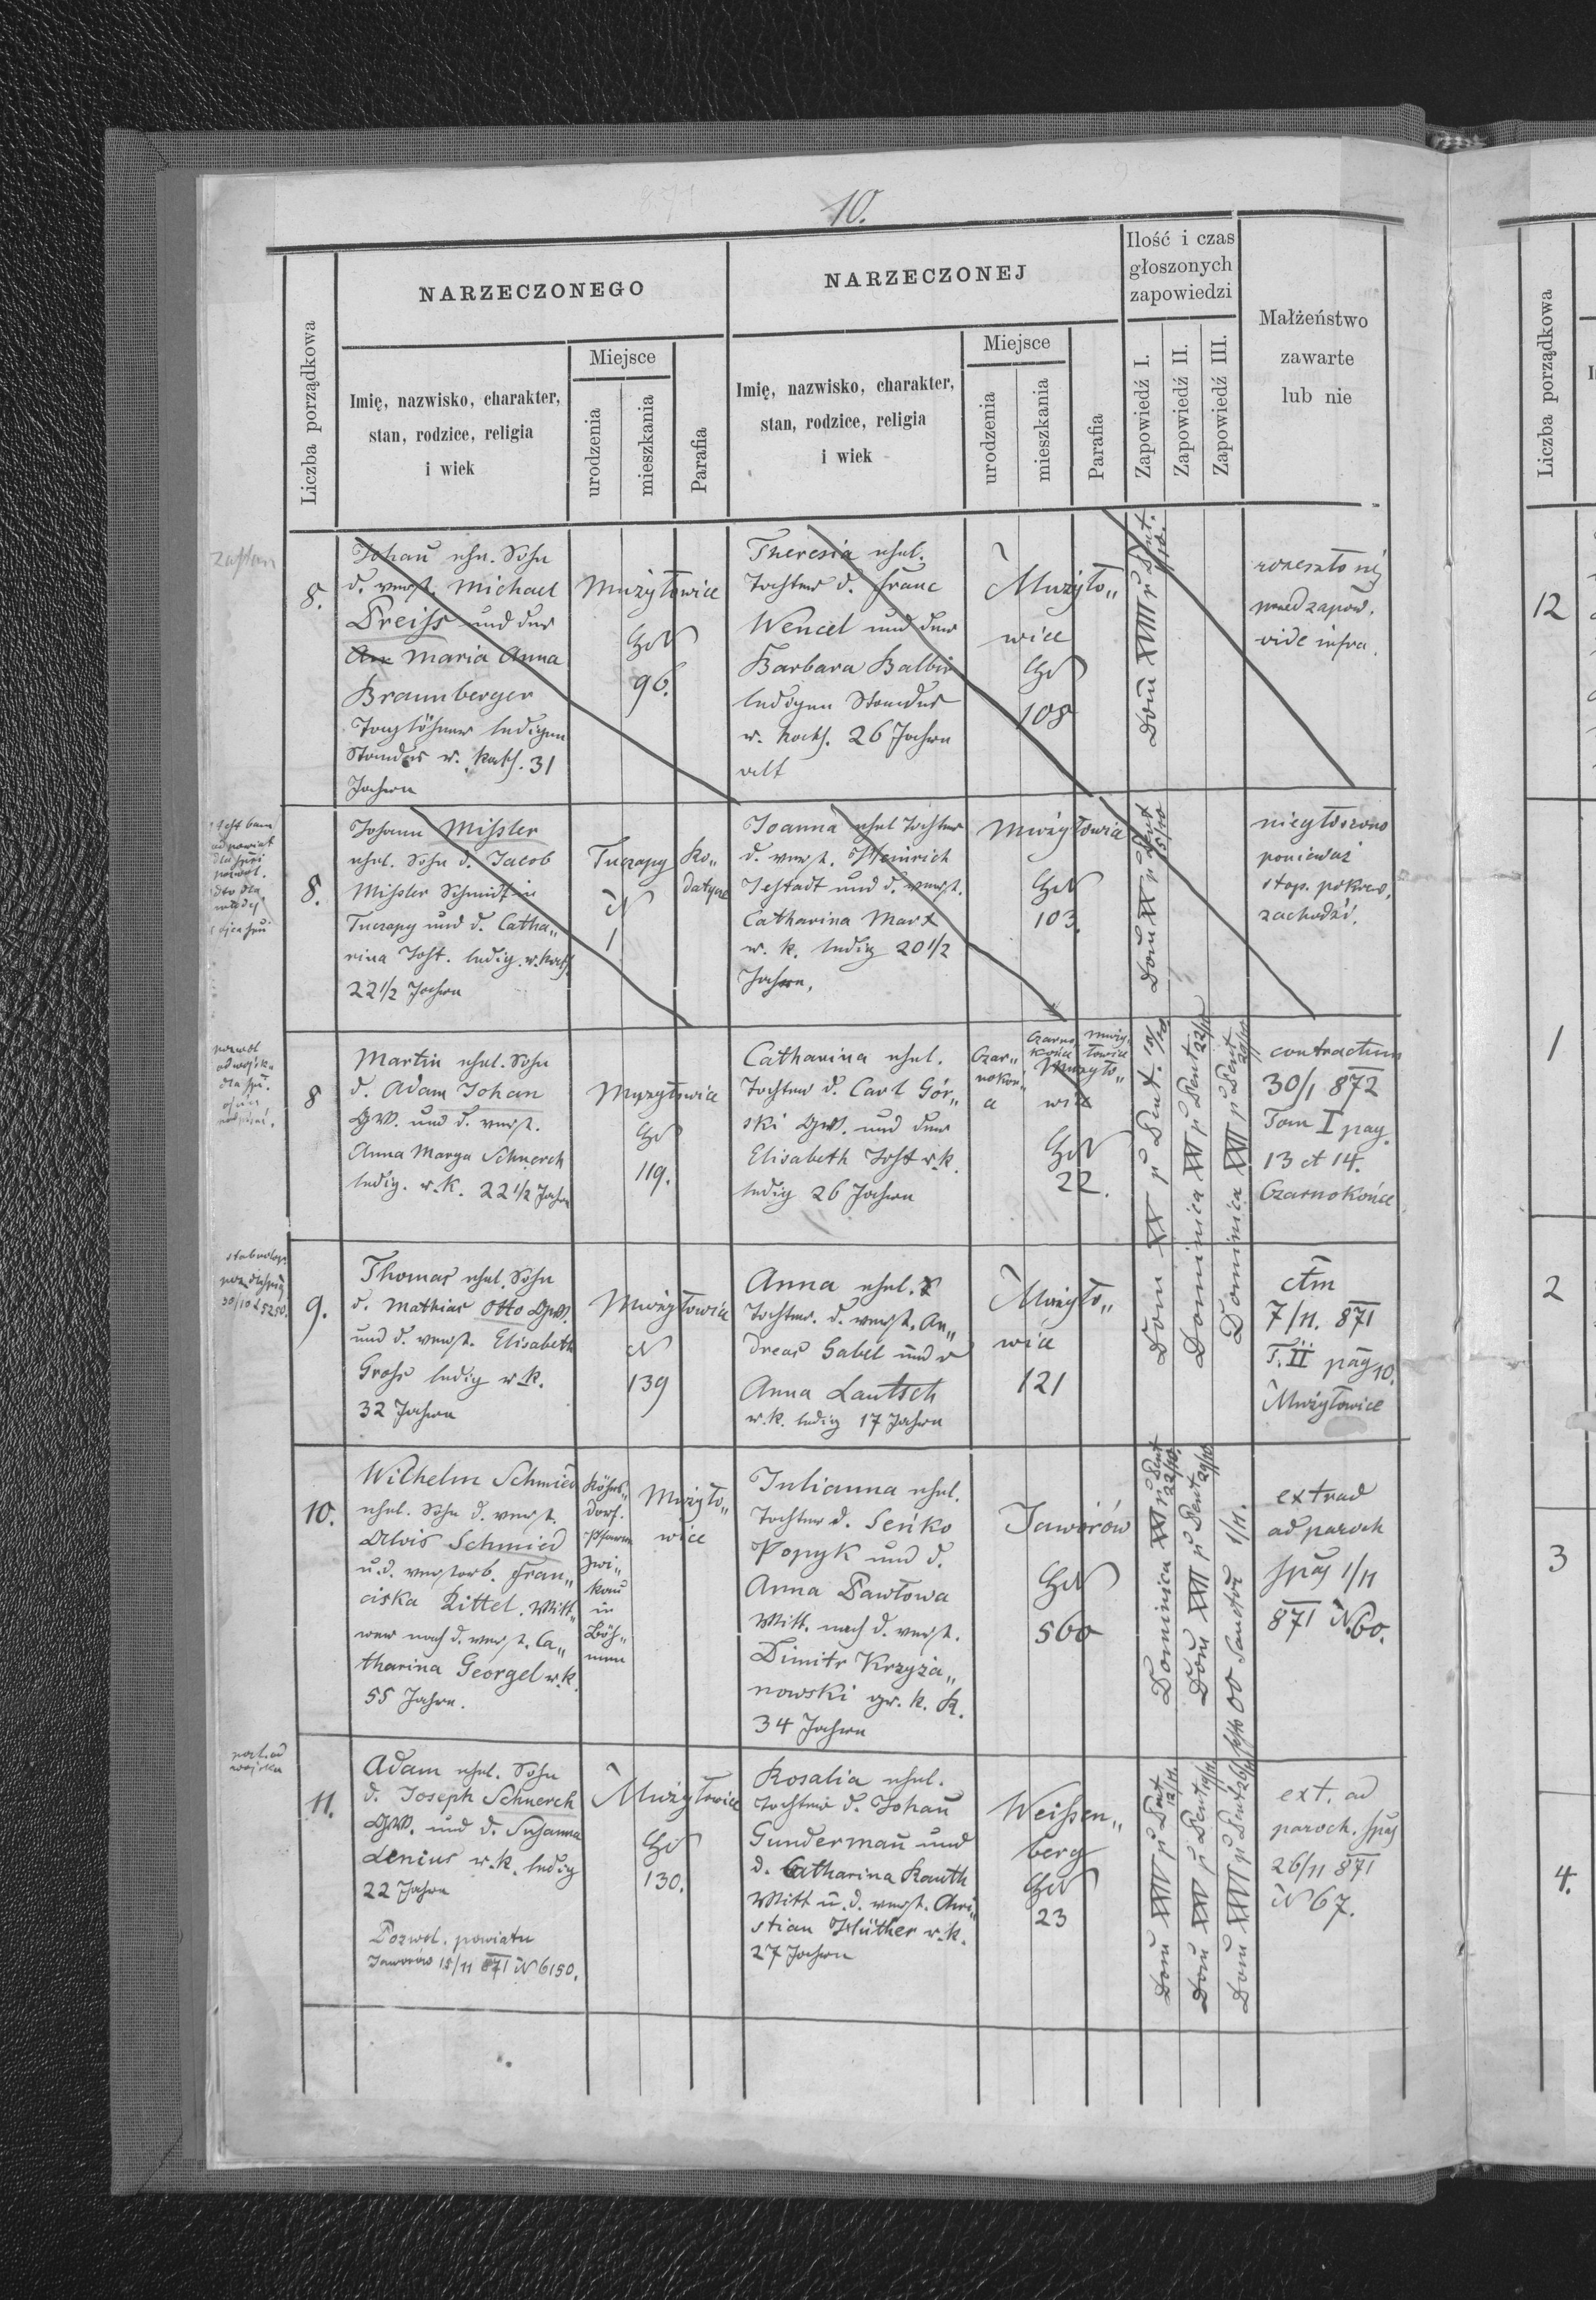 10.
Liczba porządkowa
NARZECZONEGO
Imię, nazwisko, charakter,
stan, rodzice, religia
i wiek
Miejsce
urodzenia
mieszkania
Parafia
NARZECZONEJ
Imię, nazwisko, charakter,
stan, rodzice, religia
i wiek
Miejsce
urodzenia
mieszkania
Parafia
Ilość i czas
głoszonych
zapowiedzi
Zapowiedź I.
Zapowiedź II.
Zapowiedź III.
Małżeństwo
zawarte
lub nie
8.
Johan̄ ehel. Sohn
d. verst. Michael
Preiss und der
Maria Anna
Braunberger
Taglöhner ledigen
Standes r. kath. 31
Jahren
Mużyłowice
HN
96.
Theresia ehel.
Tochter d. Franc
Wencel und der
Barbara Balbir
ledigen Standes
r. kath. 26 Jahren
alt
Mużyło„
wice
HN
108
Dom̄ XVIII p Pent.
rozeszło się
przed zapow.
vide infra.
8.
Johann Missler
ehel. Sohn d. Jacob
Missler Schmidt in
Tuczapy und d. Catha„
rina Jost. ledig. r. kath
22 1/2 Jahren
Tuczapy
N
1
Ko„
datyne
Joanna ehel Tochter
d. verst. Heinrich
Jestadt und d. verst.
Catharina Marx
r. k. ledig 20 1/2
Jahren,
Mużyłowice
HN
103.
Dom̄ XX p Pent 15/10
niegłoszono
ponieważ
stop. pokrew.
zachodzi.
8
Martin ehel. Sohn
d. Adam Johan
GW. und d. verst.
Anna Marga Schnerch
ledig. r. k. 22 1/2 Jahre
Mużyłowice
HN
119.
Catharina ehel.
Tochter d. Carl Gór„
ski GW. und der
Elisabeth Jost r. k.
ledig 26 Jahren
Czar„
nokoń„
a
Czarno
końce
Mużyło„
wice
HN
22.
Mużyłowice
Dom XX p Pent. 15/10
Dominica XXI p Pent 22/10
Dominica XXII p Pent 29/10
contractum
30/1 872
Tom I pag.
13 et 14.
Czarnokońce
9.
Thomas ehel. Sohn
d. Mathias Otto GW.
und d. verst. Elisabeth
Gross ledig r. k.
32 Jahren
Mużyłowice
N
139
Anna ehel.
Tochter. d. verst. An„
dreas Gabel und d
Anna Lautsch
r. k. ledig 17 Jahren
Mużyło„
wice
121
ctm̄
7/11. 871
T. II pag 10.
Mużyłowice
10.
Wilhelm Schmied
ehel. Sohn d. verst.
Alois Schmied
u. d. verstorb. Fran„
ciska Rittel. Witt„
wer nach d. verst. Ca„
tharina Georgel r. k.
55 Jahren.
Röhrs„
dorf.
Pfarre
Zwi„
kau
in
Böh„
men
Mużyło„
wice
Julianna ehel.
Tochter d. Seńko
Popyk und d.
Anna Pawłowa
Witt. nach d. verst.
Dimitr Krzyża„
nowski gr. k. R.
34 Jahren
Jaworów
HN
560
Dominica XXI p Pent 22/10.
Dom̄ XXII p Pent 29/10
festo OO Sanctor 1/11.
extrad
ad paroch
1/11
871 N. 60.
11.
Adam ehel. Sohn
d. Joseph Schnerch
GW. und d. Susanna
Lenius r. k. ledig
22 Jahre
Pozwol. powiatu
Jaworów 15/11 871 N 6150.
Mużyłowice
HN
130.
Rosalia ehel.
Tochter d. Johan̄
Gunderman̄ und
d. Catharina Rauth
Witt n. d. verst. Chri„
stian Hüther r. k.
27 Jahren
Weissen„
berg
HN
23
Dom̄ XXIV p Pent 12/11.
Dom̄ XXV p Pent 19/11.
Dom̄ XXVI p Pent 26/11
ext. ad
paroch.
26/11 871
N 67.
12
1
2
3
4.
Liczba porządkowa